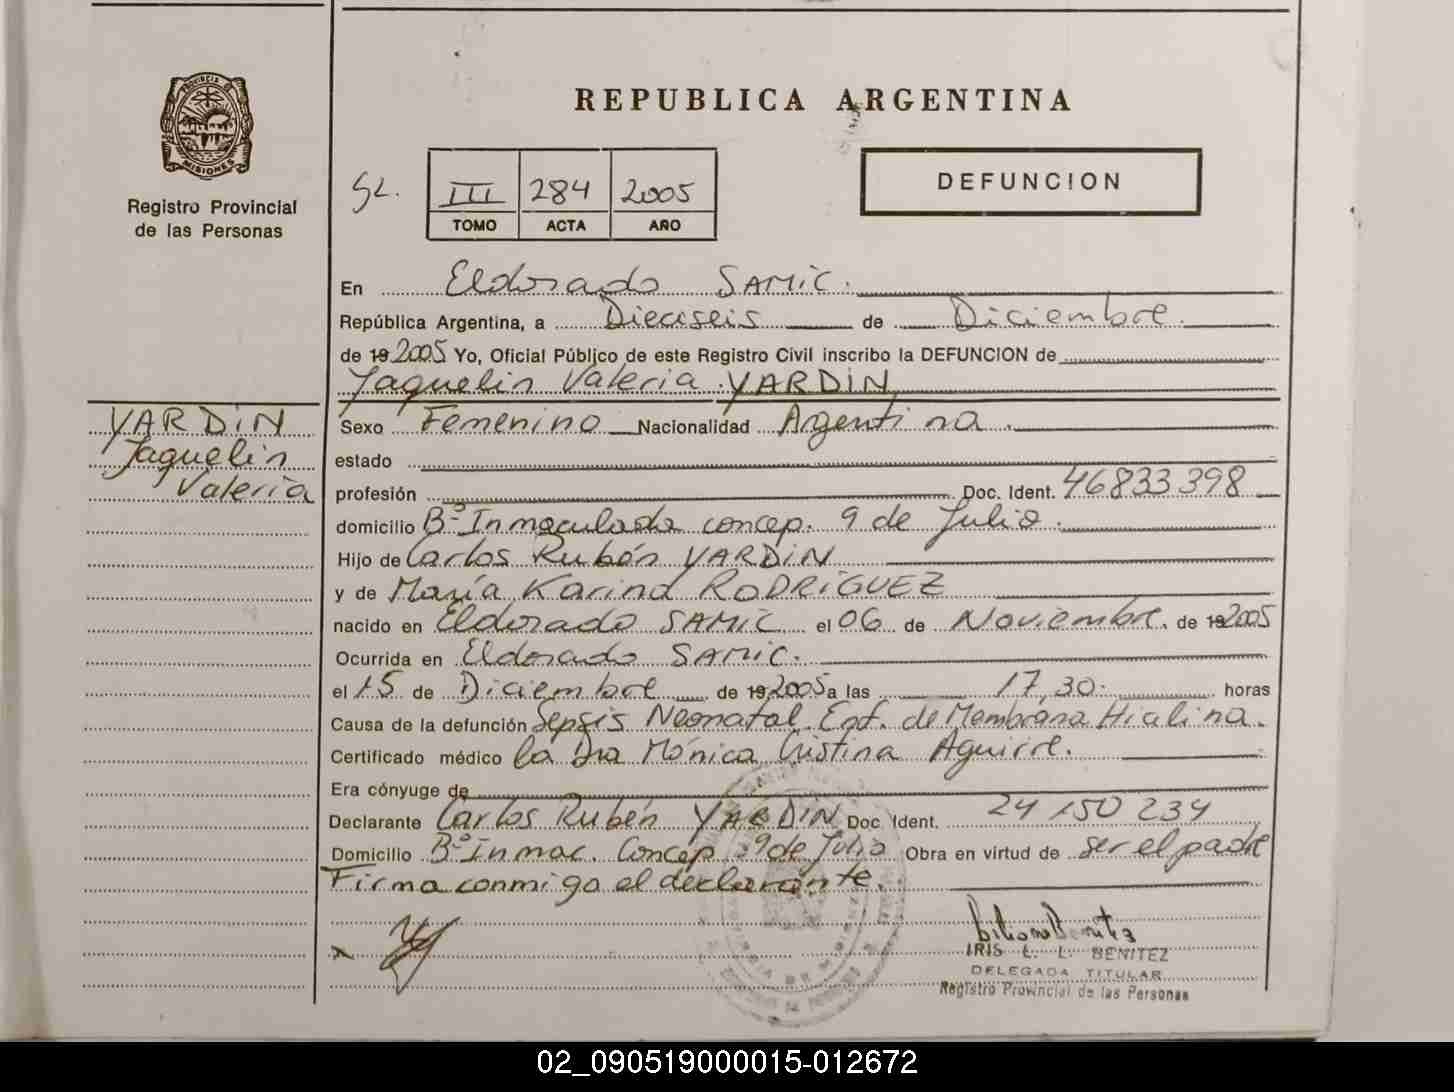 REPUBLICA ARGENTINA
PROVINCIA DE
MISIONES
Registro Provincial
de las Personas
GL.
III 284 2005
TOMO ACTA AÑO
DEFUNCION
En Eldorado SAMIC.
República Argentina, a Dieciseis de Diciembre.
de 19 2005 Yo, Oficial Público de este Registro Civil inscribo la DEFUNCION de
Jaquelin Valeria YARDIN
YARDIN
Jaquelin
Valeria
Sexo Femenino Nacionalidad Argentina.
estado
profesión Doc. Ident. 46833398
domicilio Bº Inmaculada concep. 9 de Julio.
Hijo de Carlos Rubén YARDIN
y de María Karina RODRIGUEZ
nacido en Eldorado SAMIC el 06 de Noviembre. de 19 2005
Ocurrida en Eldorado SAMIC.
el 15 de Diciembre de 19 2005 a las 17,30. horas
Causa de la defunción Sepsis Neonatal. Enf. de Membrana Hialina.
Certificado médico la Dra Mónica Cristina Aguirre.
Era cónyuge de
Declarante Carlos Rubén YARDIN Doc. Ident. 24 150 234
Domicilio Bº Inmac. Concep. 9 de Julio Obra en virtud de ser el padre
Firma conmigo el declarante.
IRIS L. L. BENITEZ
DELEGADA TITULAR
Registro Provincial de las Personas
02_090519000015-012672